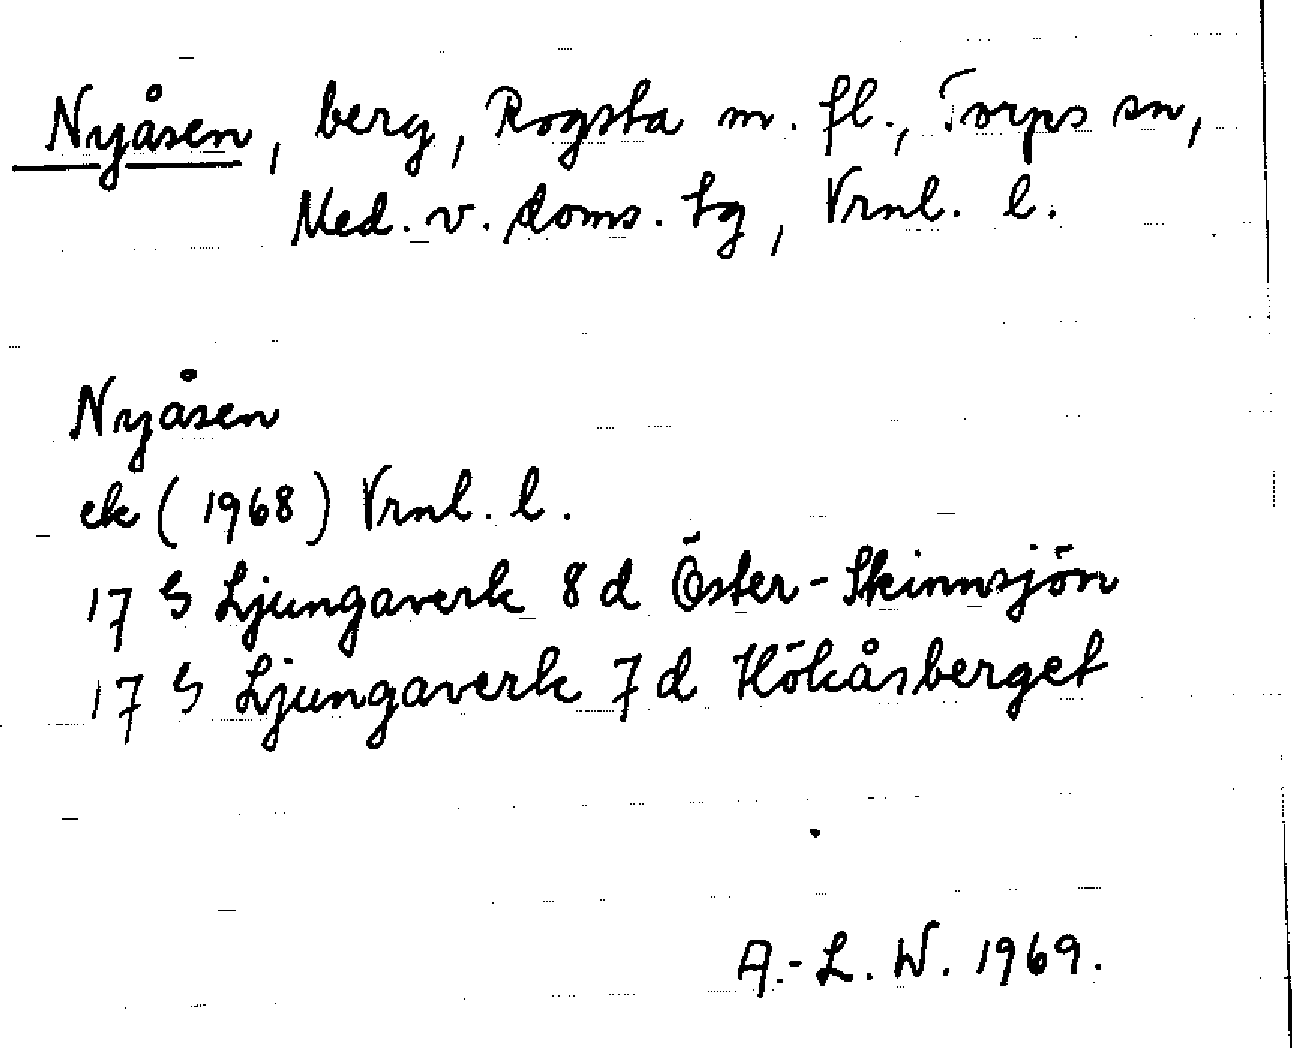 Nyåsen, berg, Rogsta m. fl., Torps sn,
Med. v. doms. tg, Vrnl. l.
Nyåsen
ek (1968) Vrnl. l.
17 G Ljungaverk 8 d Öster-Skinnsjön
17 G Ljungaverk 7 d Hökåsberget
A.-L. W. 1969.